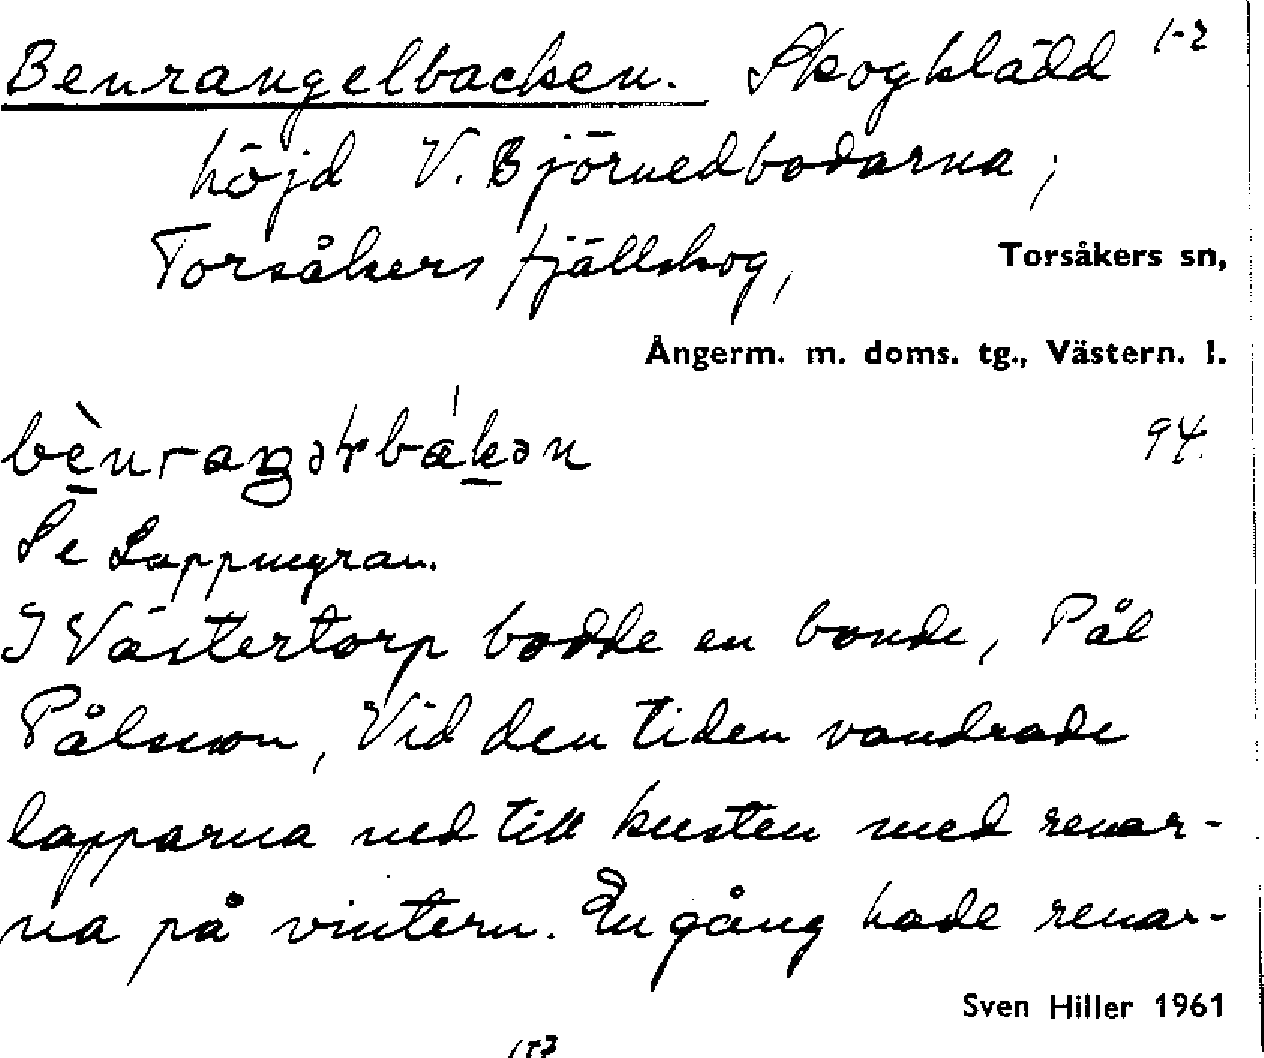 Benrangelbacken. Skogklädd 1-2
höjd V. Björnedbodarna,
Torsåkers fjällskog, Torsåkers sn,
Ångerm. m. doms. tg., Västern. l.
94.
Se Lappmyran.
I Västertorp bodde en bonde, Pål
Pålsson, Vid den tiden vandrade
lapparna ned till kusten med renar-
na på vintern. En gång hade renar-
Sven Hiller 1961